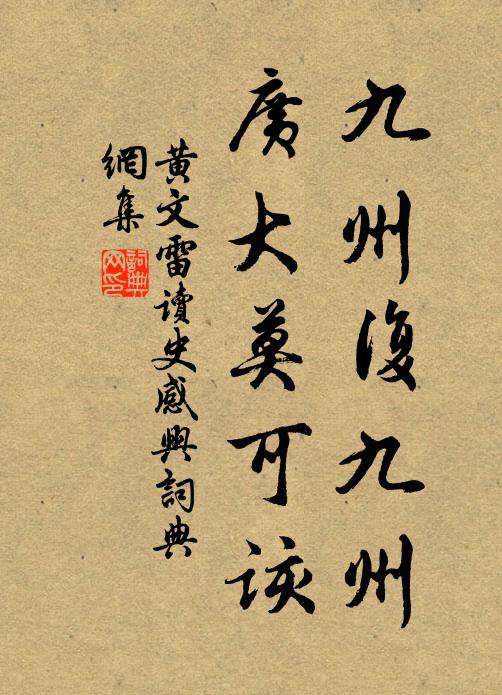 九州復九州
廣大莫可該
黃文雷讀史感興詞典
網集
詞典
网印